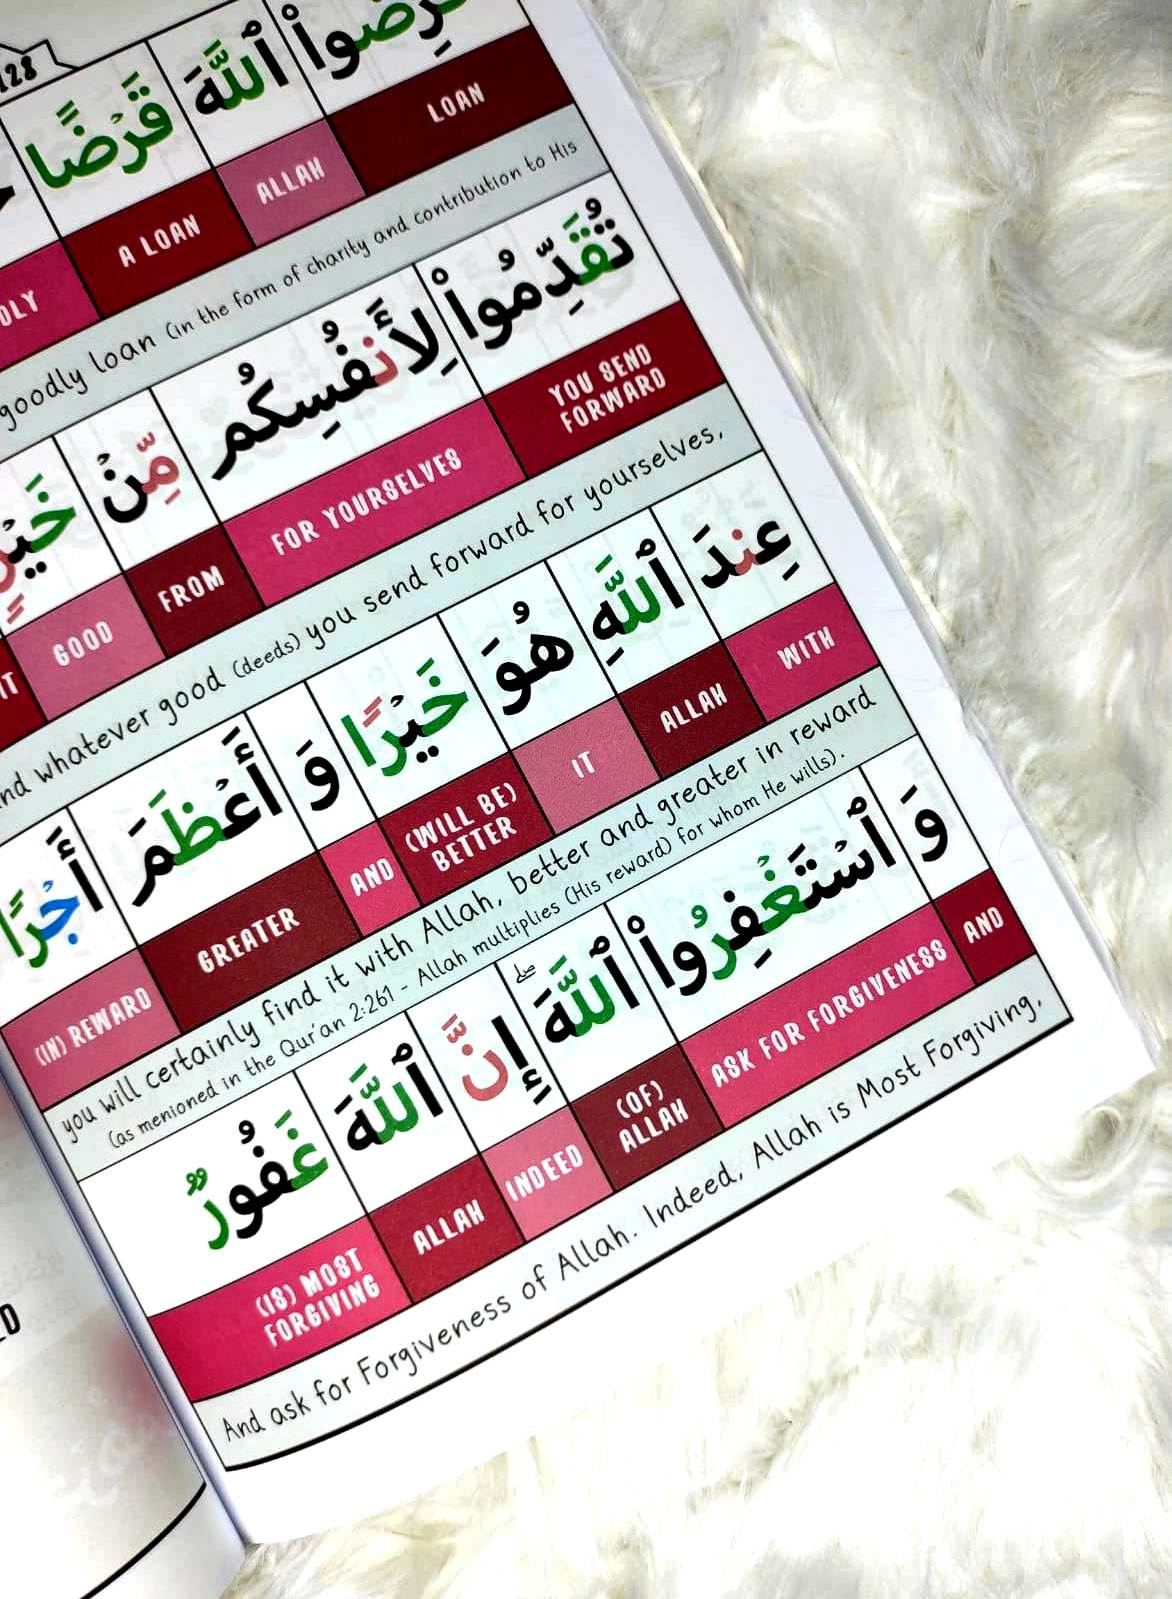 128
ٱللَّهَ قَرْضًا
LOAN ALLAH A LOAN
goodly loan (in the form of charity and contribution to His
تُقَدِّمُوا۟ لِأَنفُسِكُم مِّنْ خَيْرٍ
YOU SEND FORWARD FOR YOURSELVES FROM GOOD
whatever good (deeds) you send forward for yourselves,
عِندَ ٱللَّهِ هُوَ خَيْرًا وَ أَعْظَمَ أَجْرًا
WITH ALLAH IT (WILL BE) BETTER AND GREATER (IN) REWARD
you will certainly find it with Allah, better and greater in reward
(as menioned in the Qur'an 2:261 - Allah multiplies (His reward) for whom He wills).
وَ ٱسْتَغْفِرُوا۟ ٱللَّهَ ۖ إِنَّ ٱللَّهَ غَفُورٌ
AND ASK FOR FORGIVENESS (OF) ALLAH INDEED ALLAH (IS) MOST FORGIVING
And ask for Forgiveness of Allah. Indeed, Allah is Most Forgiving,